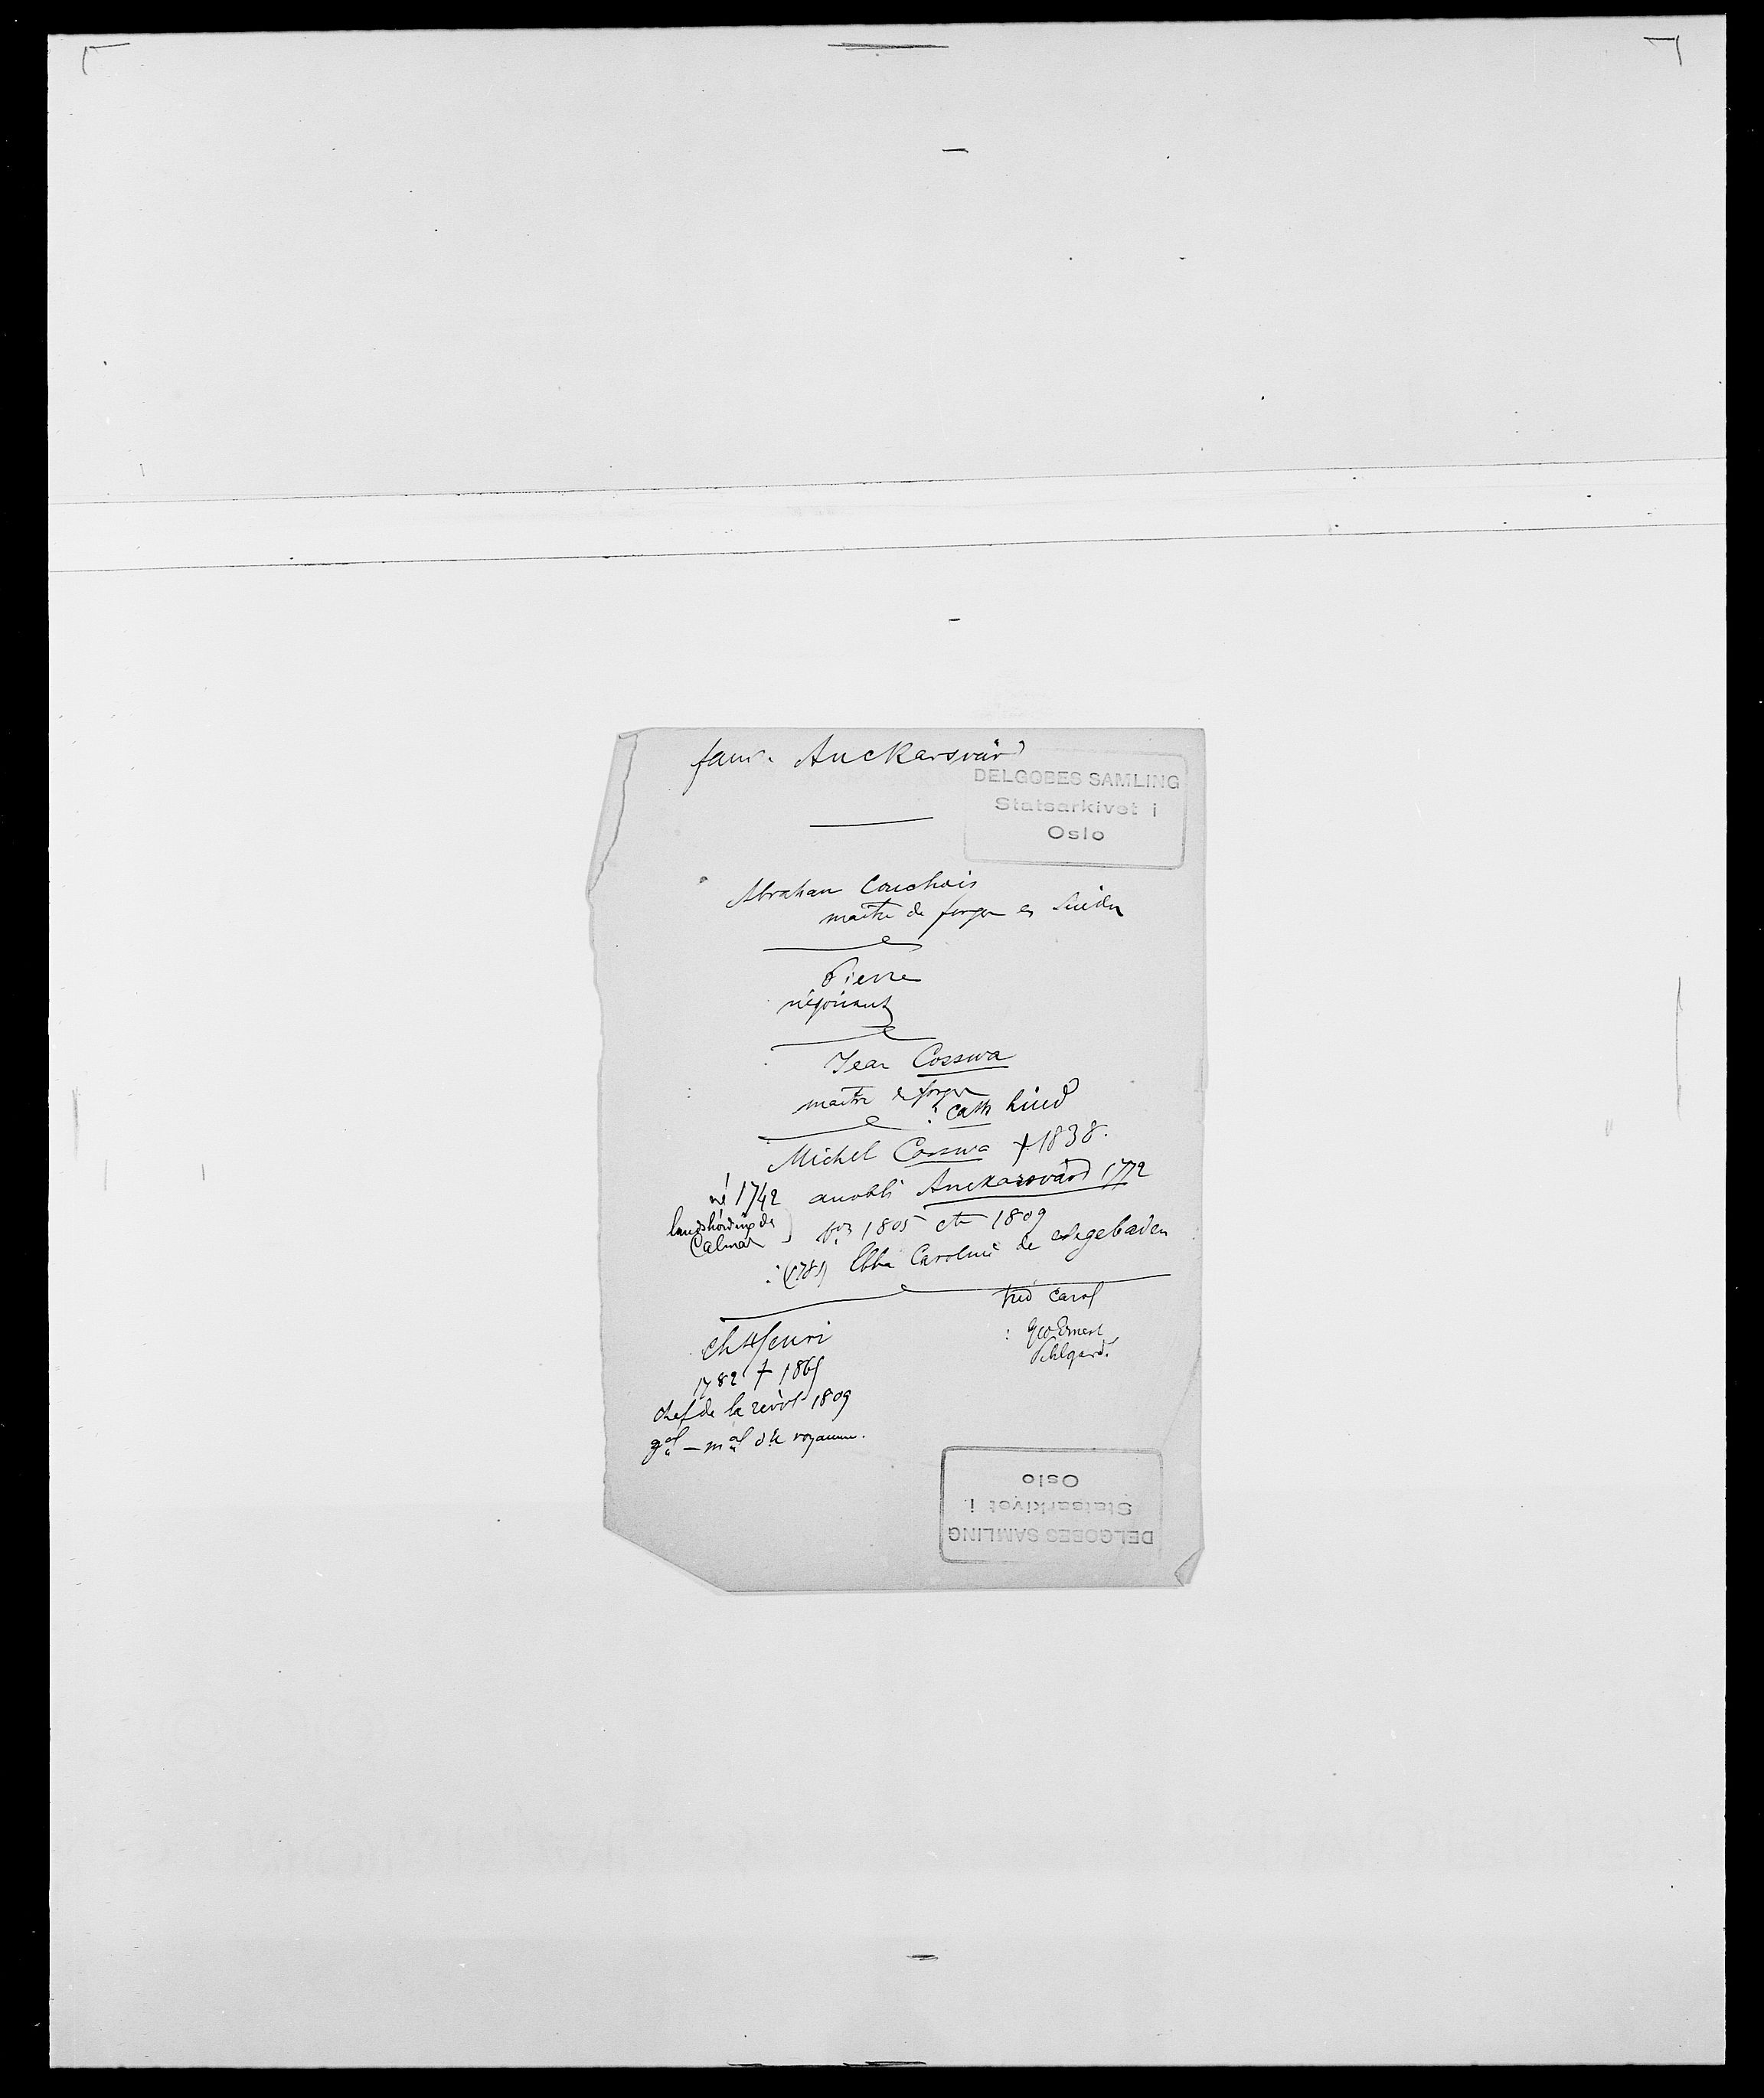 fam. Anckarsvärd
DELGOBES SAMLING
Statsarkivet i
Oslo
Abraham Couchois
maitre de forges en Suède
Pierre
négociant
Jean Cosswa
maitre de forges
: Cath Lind
Michel Cosswa † 1838.
né 1742 anobli Anckarsvärd 1772
landshöfding de
Calmar
bon 1805 cte 1809
: (1781) Ebba Caroline de
Ch Henri
1782 † 1865
chef de la révol 1809
gal - mal du royaume.
Fred Carol
: Geo Ernest
DELGOBES SAMLING
Statsarkivet i
Oslo